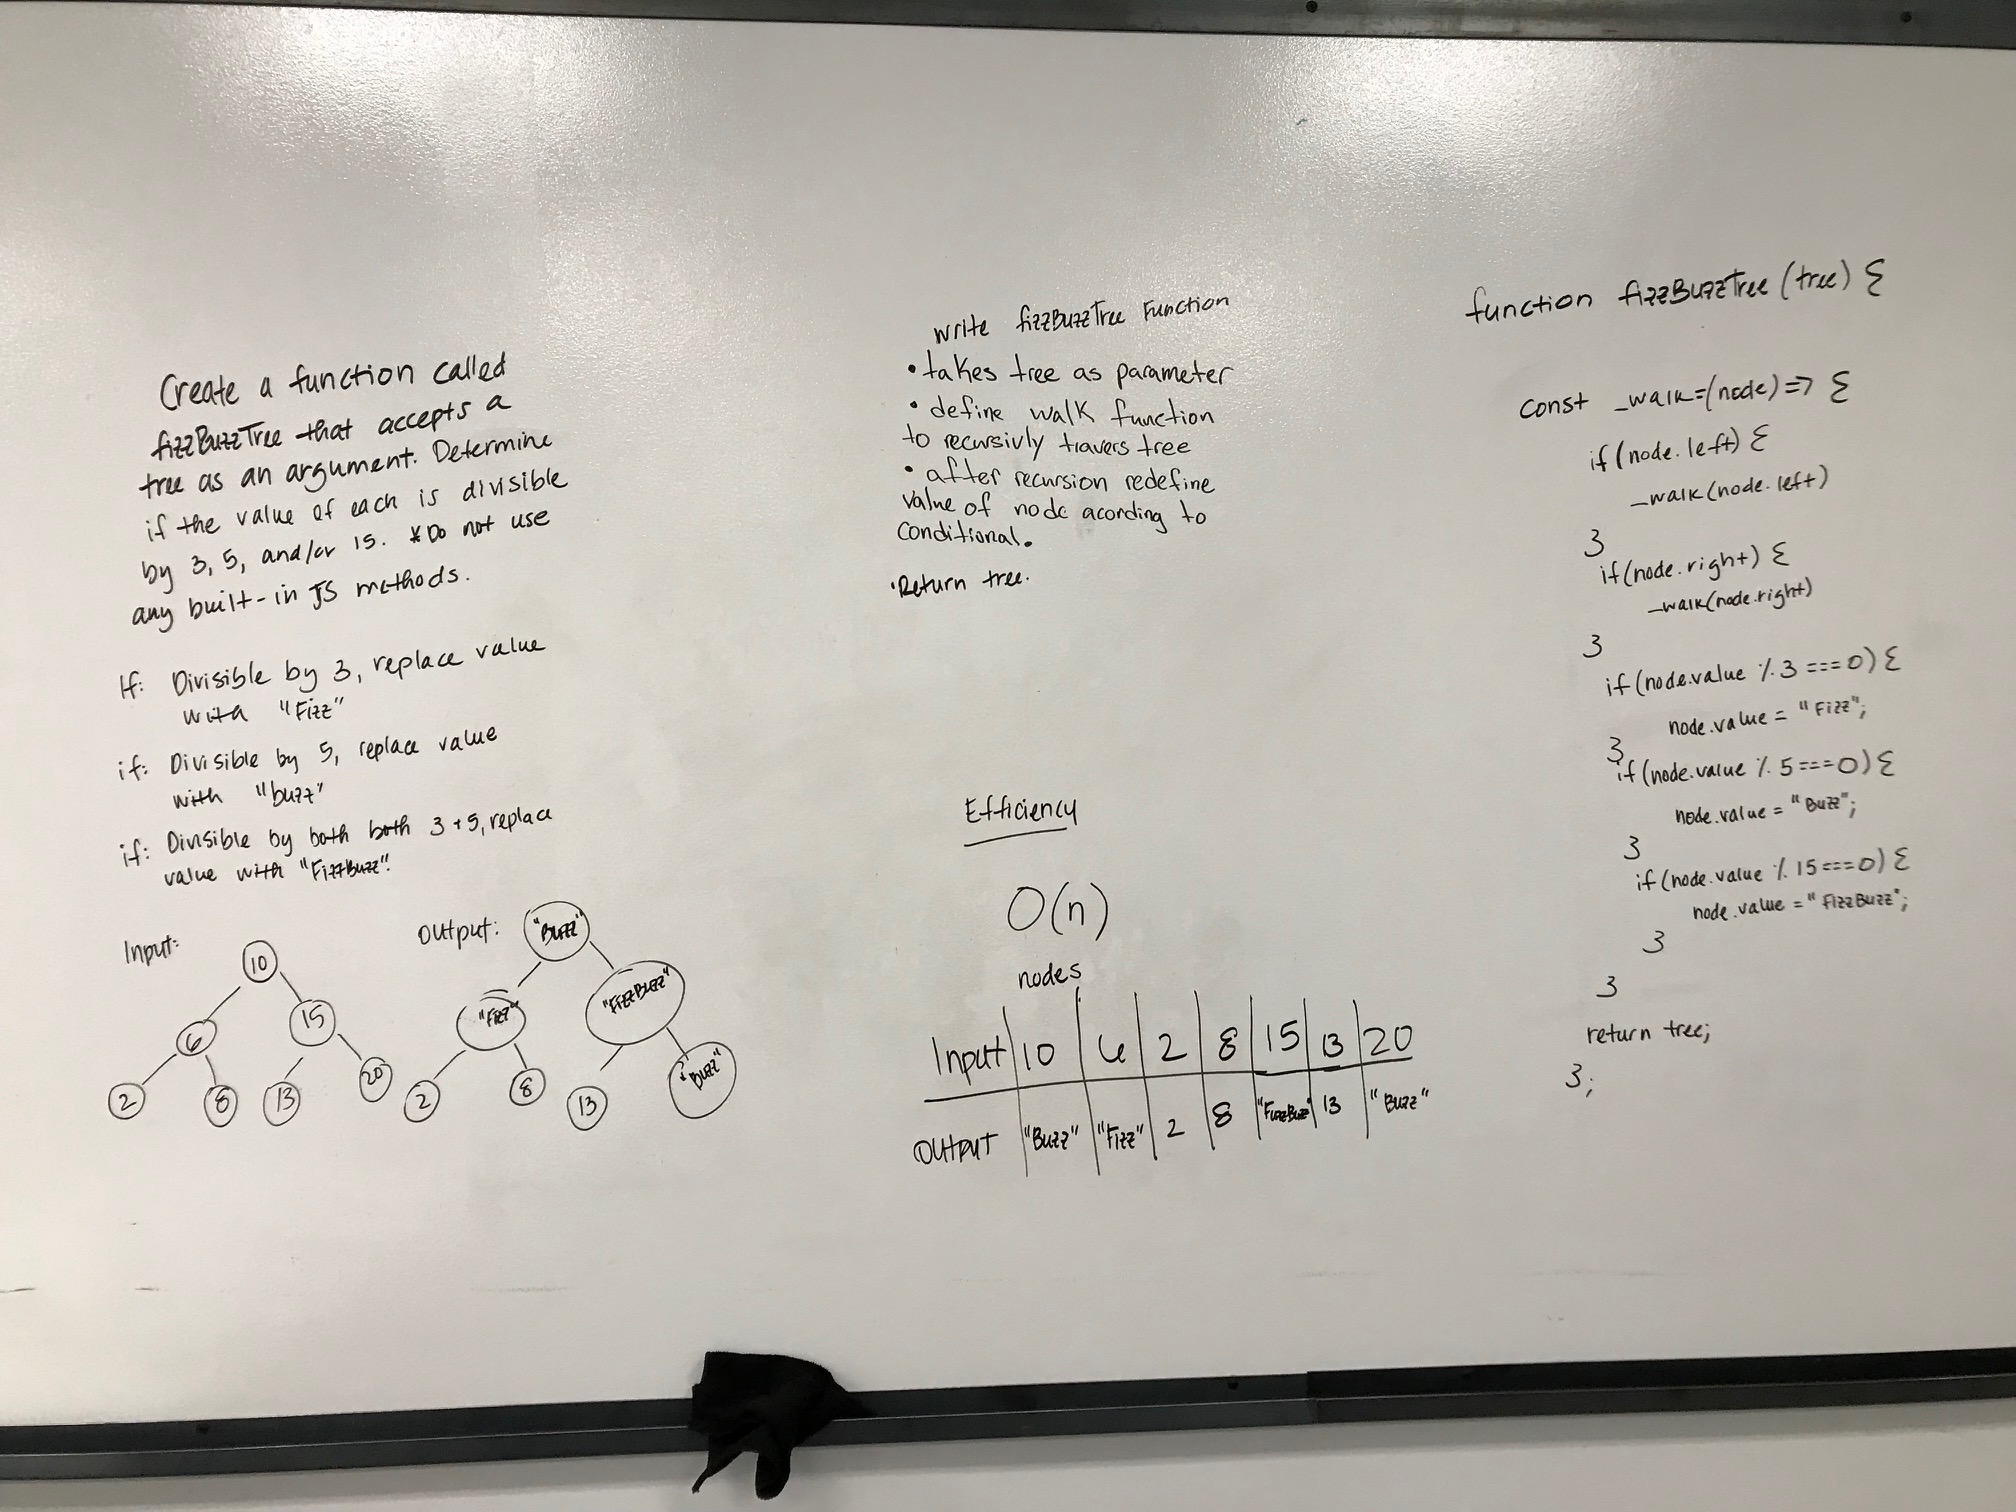 Create a function called
fizzBuzzTree that accepts a
tree as an argument. Determine
if the value of each is divisible
by 3, 5, and/or 15. *Do not use
any built-in JS methods.
If: Divisible by 3, replace value
with "Fizz"
if: Divisible by 5, replace value
with "buzz"
if: Divisible by both both 3 + 5, replace
value with "FizzBuzz".
Input:
10
6
15
2
8
13
20
Output:
"Buzz"
"Fizz"
"FizzBuzz"
2
8
13
"Buzz"
write fizzBuzzTree Function
• takes tree as parameter
• define walk function
to recursivly travers tree
• after recursion redefine
value of node acording to
conditional.
• Return tree.
Efficiency
O(n)
nodes
Input 10 6 2 8 15 13 20
OUTPUT "Buzz" "Fizz" 2 8 "FizzBuzz" 13 "Buzz"
function fizzBuzzTree (tree) {
const _walk=(node)=> {
if (node.left) {
_walk(node.left)
}
if (node.right) {
_walk(node.right)
}
if (node.value % 3 === 0) {
node.value = "Fizz";
}
if (node.value % 5 === 0) {
node.value = "Buzz";
}
if (node.value % 15 === 0) {
node.value = "FizzBuzz";
}
}
return tree;
};